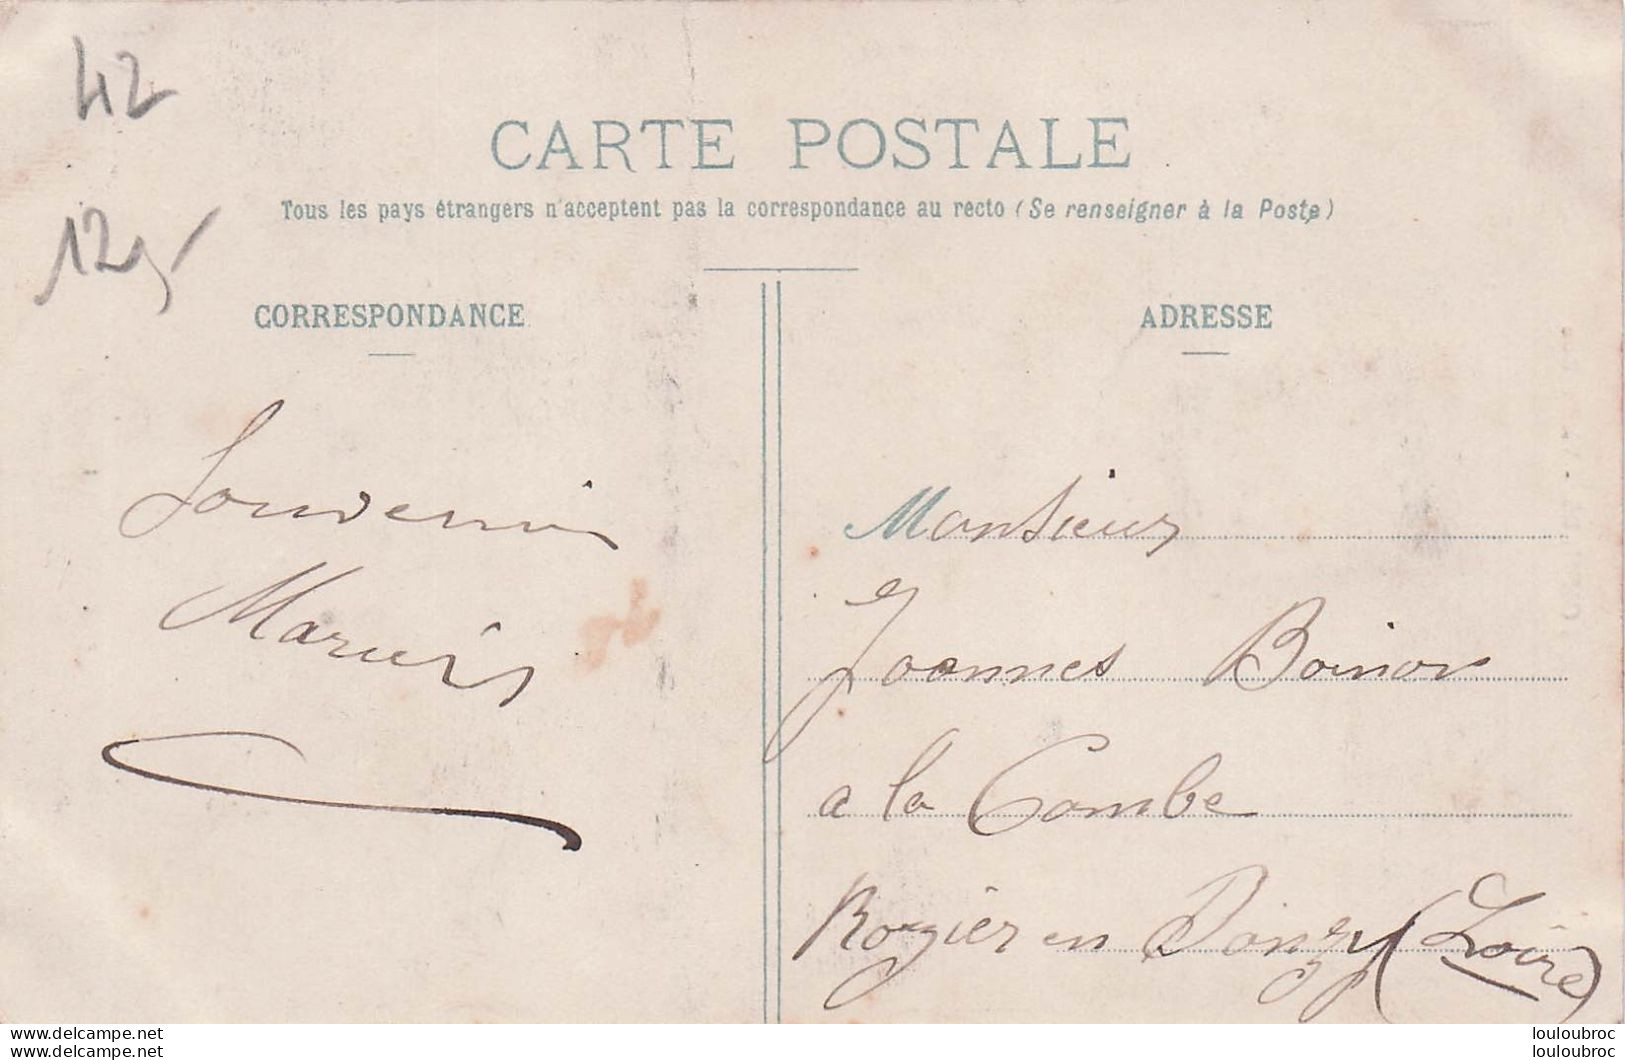 42
12,-
CARTE POSTALE
Tous les pays étrangers n'acceptent pas la correspondance au recto (Se renseigner à la Poste)
CORRESPONDANCE
ADRESSE
Souvenir
Marius
Monsieur
Joannes
a la Combe
Rozier en Donzy (Loire)
www.delcampe.net
www.delcampe.net
louloubroc
louloubroc